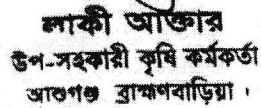 লাকী আক্তার
উপ-সহকারী কৃষি কর্মকর্তা
আশুগঞ্জ ব্রাহ্মণবাড়িয়া ।